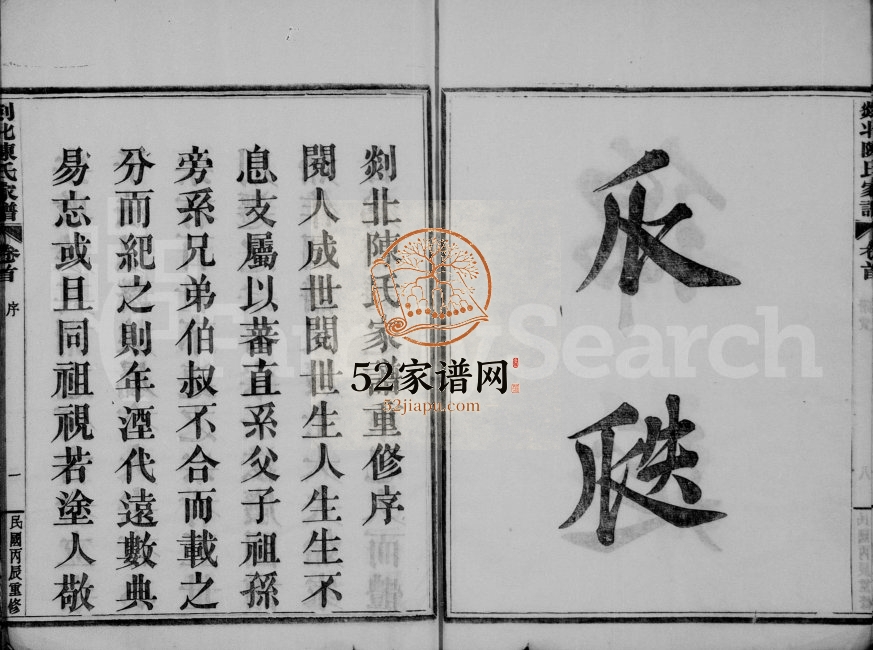 瓜
瓞
剡北陳氏家譜
卷首
剡北陳氏家譜重修序
閱人成世閱世生人生生不
息支屬以蕃直系父子祖孫
旁系兄弟伯叔不合而載之
分而紀之則年湮代遠數典
易忘或且同祖視若塗人敬
剡北陳氏家譜
卷首
序
一
民國丙辰重修
52家谱网
52jiapu.com
FamilySearch